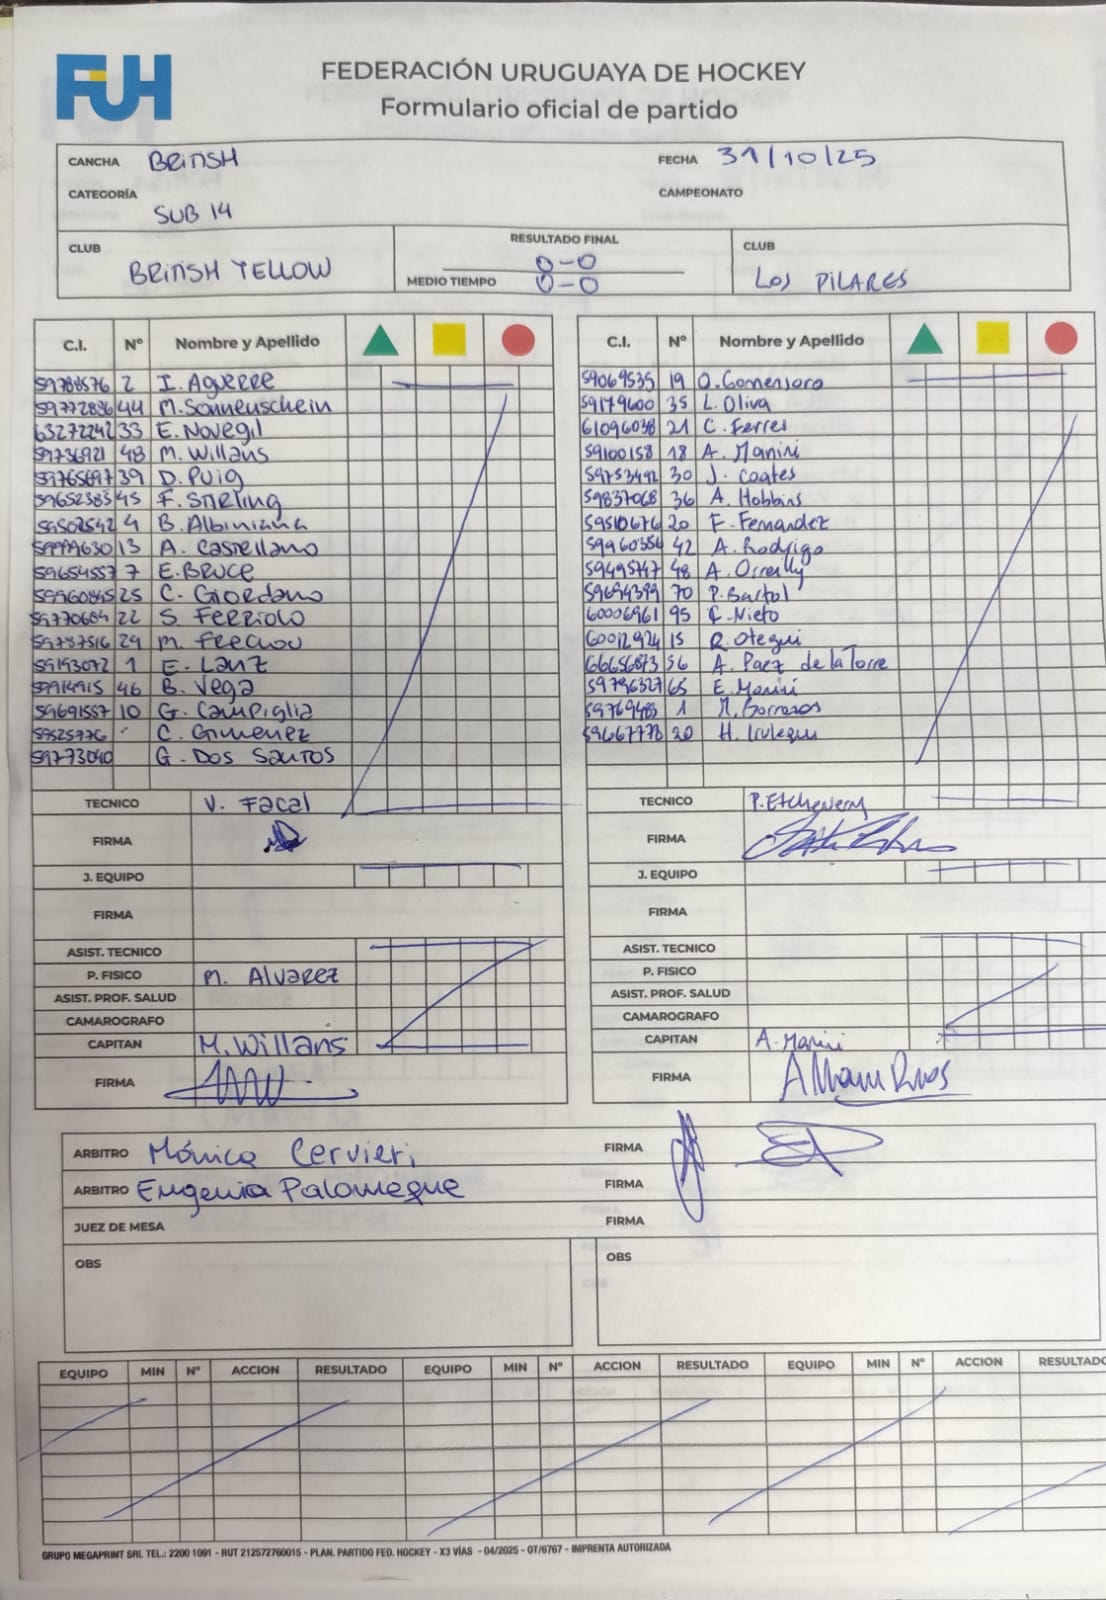 FUH
FEDERACIÓN URUGUAYA DE HOCKEY
Formulario oficial de partido
CANCHA BRITISH FECHA 31/10/25
CATEGORÍA SUB 14 CAMPEONATO
CLUB BRITISH YELLOW
RESULTADO FINAL 0-0
MEDIO TIEMPO 0-0
CLUB LOS PILARES
C.I. Nº Nombre y Apellido
2 I. Aguerre
44 M. Sonnenschein
63272242 33 E. Novegil
59736921 48 M. Willans
59765697 39 D. Puig
59652385 45 F. Stirling
59502542 4 B. Albiniana
13 A. Castellano
59654557 7 E. BRUCE
25 C. Giordano
59770604 22 S. Ferriolo
59787516 29 M.
59193072 1 E. Lanz
46 B. Vega
59691557 10 G. Campiglia
59525776 C. Gimenez
59773040 G. Dos Santos
TECNICO V. Facal
FIRMA
J. EQUIPO
FIRMA
ASIST. TECNICO
P. FISICO M. Alvarez
ASIST. PROF. SALUD
CAMAROGRAFO
CAPITAN M. Willans
FIRMA
C.I. Nº Nombre y Apellido
59069535 19 O. Gomensoro
59179600 35 L. Oliva
61096038 21 C. Ferres
59100158 18 A. Manini
59753492 30 J. Coates
59837068 36 A. Hobbins
59510676 20 F. Fernandez
59960356 42 A. Rodrigo
59495747 48 A. Orreilly
59694399 70 P. Bartol
60006961 95 C. Nieto
60012924 15 R. Otegui
66656873 56 A. Paez de la Torre
59796327 65 E. Manini
59769483 1 M.
59667778 20 H.
TECNICO P. Etcheverry
FIRMA
J. EQUIPO
FIRMA
ASIST. TECNICO
P. FISICO
ASIST. PROF. SALUD
CAMAROGRAFO
CAPITAN A. Manini
FIRMA
ARBITRO Mónica Cervieri FIRMA
ARBITRO Eugenia Palomeque FIRMA
JUEZ DE MESA FIRMA
OBS OBS
EQUIPO MIN Nº ACCION RESULTADO EQUIPO MIN Nº ACCION RESULTADO EQUIPO MIN Nº ACCION RESULTADO
GRUPO MEGAPRINT SRL TEL.: 2200 1091 - RUT 212572760015 - PLAN. PARTIDO FED. HOCKEY - X3 VÍAS - 04/2025 - OT/6767 - IMPRENTA AUTORIZADA